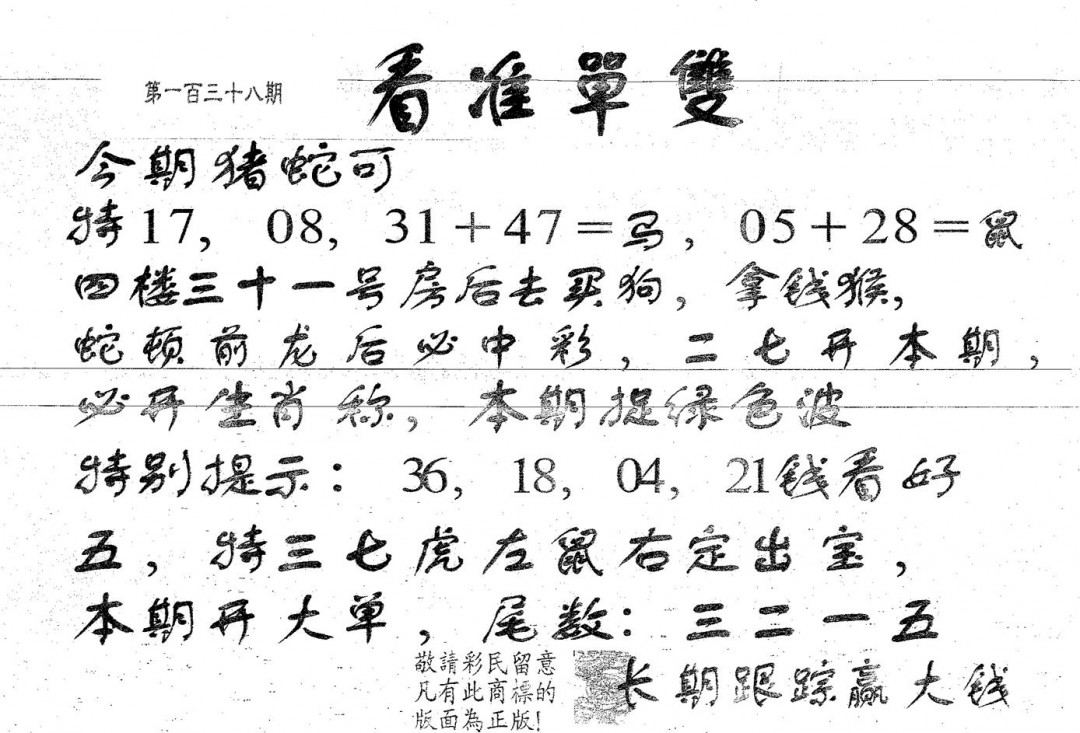 第一百三十八期
看准單雙
今期猪蛇可
特17, 08, 31+47=马, 05+28=鼠
四楼三十一号房后去买狗, 拿钱猴,
蛇頓前龙后必中彩, 二七开本期,
必开生肖称, 本期捉绿色波
特别提示: 36, 18, 04, 21钱看好
五, 特三七虎左鼠右定出宝,
本期开大单, 尾数: 三二一五
敬請彩民留意
凡有此商標的
版面為正版!
长期跟踪赢大钱